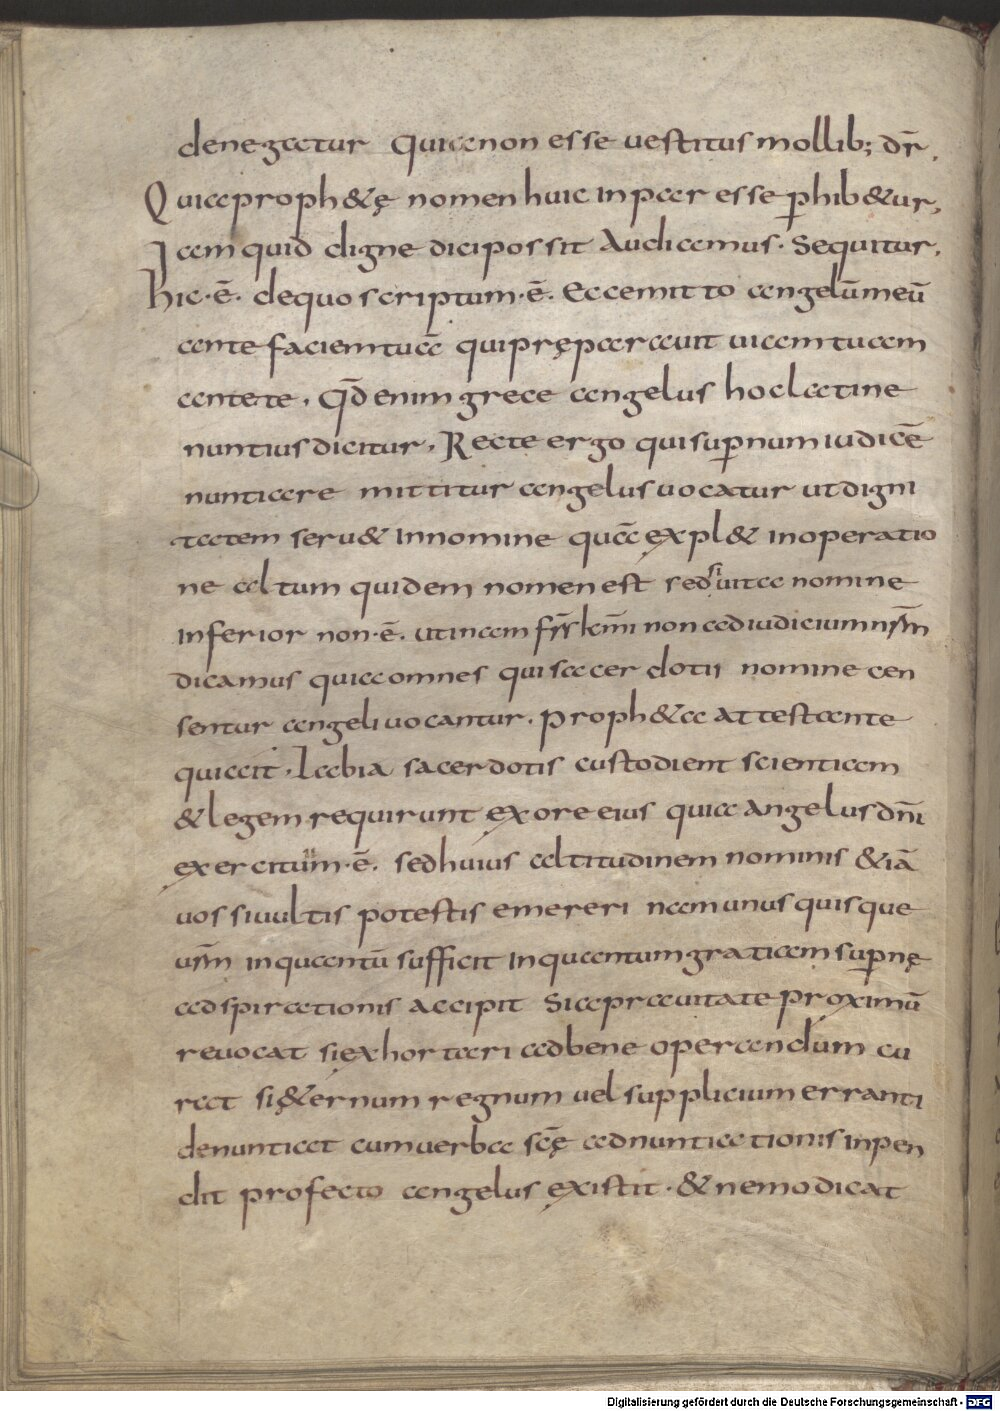 denegatur Quia non esse uestitus mollib; dr̄.
Quia proph&ę nomen huic inpar esse ꝑhib&ur;
Iam quid digne dici possit Audiamus. Sequitur.
hic .ē. de quo scriptum .ē. Ecce mitto angelū meū
ante faciem tuā qui pręparauit uiam tuam
ante te. Qd̄ enim grece angelus hoc latine
nuntius dicitur. Recte ergo qui suꝑnum iudicē
nuntiare mittitur angelus uocatur ut digni
tatem seru& in nomine quā expl& in operatio
ne altum quidem nomen est sed si uita nomine
inferior non .ē. utinam frs̄ km̄i non ad iudicium nr̄m
dicamus quia omnes qui sacerdotii nomine cen
sentur angeli uocantur. proph&a attestante
qui ait. Labia sacerdotis custodient scientiam
& legem requirunt ex ore eius quia Angelus dn̄i
exercituum .ē. sed huius altitudinem nominis &iā
uos si uultis potestis emereri nam unus quisque
ur̄m in quantū sufficit in quantum gratiam suꝑnę
adspirationis accipit Si a prauitate proximū
reuocat si exhortari ad bene operandum cu
rat si ę&ernum regnum uel supplicium erranti
denuntiat cum uerba scę̄ adnuntiationis inpen
dit profecto angelus existit. & nemo dicat
Digitalisierung gefördert durch die Deutsche Forschungsgemeinschaft - DFG